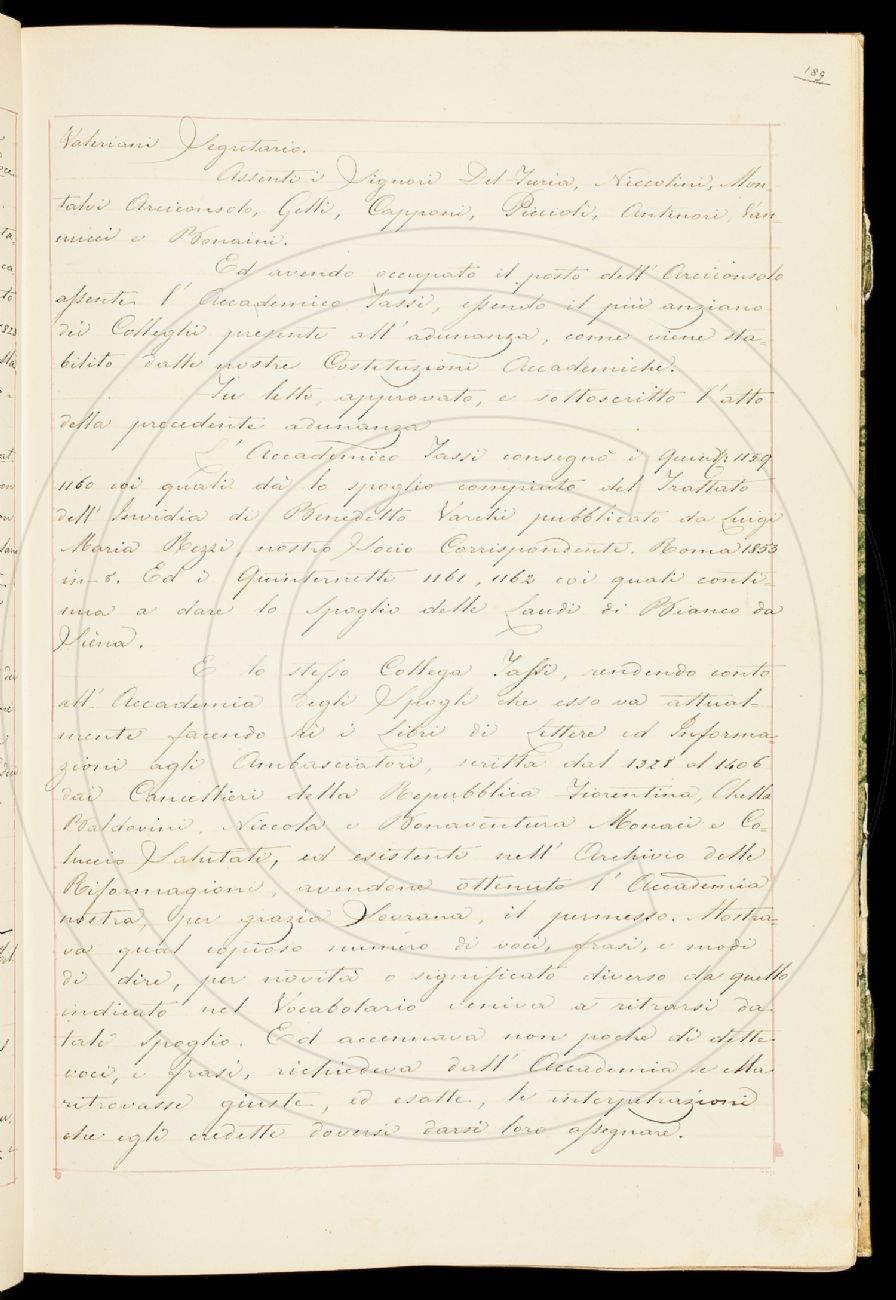 189
Valeriani Segretario.
Assenti i Signori Del Furia, Niccolini, Mon-
talvi Arciconsolo, Gelli, Capponi, Piccioli, Antinori, Van-
nucci e Bonaini.
Ed avendo occupato il posto dell' Arciconsolo
assente l' Accademico Tassi, essendo il più anziano
dei Colleghi presente all' adunanza, come viene sta-
bilito dalle nostre Costituzioni Accademiche.
Fu letto, approvato, e sottoscritto l' atto
della precedente adunanza
L' Accademico Tassi consegnò i Quint.i 1159
1160 coi quali dà lo spoglio compiuto del Trattato
dell' Invidia di Benedetto Varchi pubblicato da Luigi
Maria Rezzi, nostro Socio Corrispondente. Roma 1853
in-8. Ed i Quinternetti 1161, 1162 coi quali conti-
nua a dare lo spoglio delle Laudi di Bianco da
Siena.
E lo stesso Collega Tassi, rendendo conto
all' Accademia degli Spogli che esso va attual-
mente facendo su i Libri di Lettere ed Informa-
zioni agli Ambasciatori, scritta dal 1328 al 1406
dai Cancellieri della Repubblica Fiorentina, Chello
Baldovini, Niccola e Bonaventura Monaci e Co-
luccio Salutati, ed esistenti nell' Archivio delle
Riformagioni, avendone ottenuto l' Accademia
nostra, per grazia Sovrana, il permesso. Mostra-
va qual copioso numero di voci, frasi, e modi
di dire, per novità o significato diverso da quello
indicato nel Vocabolario veniva a ritrarsi da
tale spoglio. Ed accennava non poche di dette
voci, e frasi, richiedeva dall' Accademia se ella
ritrovasse giuste, ed esatte, le interpetrazioni
che egli credette doversi darsi loro assegnare.